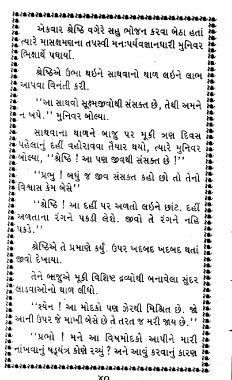 એકવાર શ્રેષ્ઠિ વગેરે સહુ ભોજન કરવા બેઠા હતાં
ત્યારે માસક્ષમણના તપસ્વી મનઃપર્યવજ્ઞાનધારી મુનિવર
ભિક્ષાર્થે પધાર્યા.
શ્રેષ્ઠિએ ઉભા થઇને સાથવાનો થાળ લઇને લાભ
આપવા વિનંતી કરી.
‘‘આ સાથવો સૂક્ષ્મજીવોથી સંસક્ત છે, તેથી અમને
ન ખપે.’’ મુનિવર બોલ્યા.
સાથવાના થાળને બાજુ પર મૂકી ત્રણ દિવસ
પહેલાનું દહીં વહોરાવવા તૈયાર થયો, ત્યારે મુનિવર
બોલ્યા, ‘‘શ્રેષ્ઠિ ! આ પણ જીવથી સંસક્ત છે !’’
‘‘પ્રભુ ! બધું જ જીવ સંસક્ત કહો છો તો તેનો
વિશ્વાસ કેમ બેસે’’
‘‘શ્રેષ્ઠિ ! આ દહીં પર અળતો લઇને છાંટ. દહીં
અળતાના રંગને પકડી લેશે. જીવો તે રંગને નહિ
પકડે.’’
શ્રેષ્ઠિએ તે પ્રમાણે કર્યું. ઉપર ખદબદ ખદબદ થતાં
જીવો દેખાયા.
તેને બાજુએ મૂકી વિશિષ્ટ દ્રવ્યોથી બનાવેલા સુંદર
લાડવાઓનો થાળ લીધો.
‘‘શ્યેન ! આ મોદકો પણ ઝેરથી મિશ્રિત છે. જો
આની ઉપર જે માખી બેસે છે તે તરત જ મરી જાય છે.’’
‘‘પ્રભો ! મને આ વિષમોદકો આપીને મારી
નાંખવાનું ષડ્યંત્ર કોણે રચ્યું ? અને આવું કરવાનું કારણ
૪૦